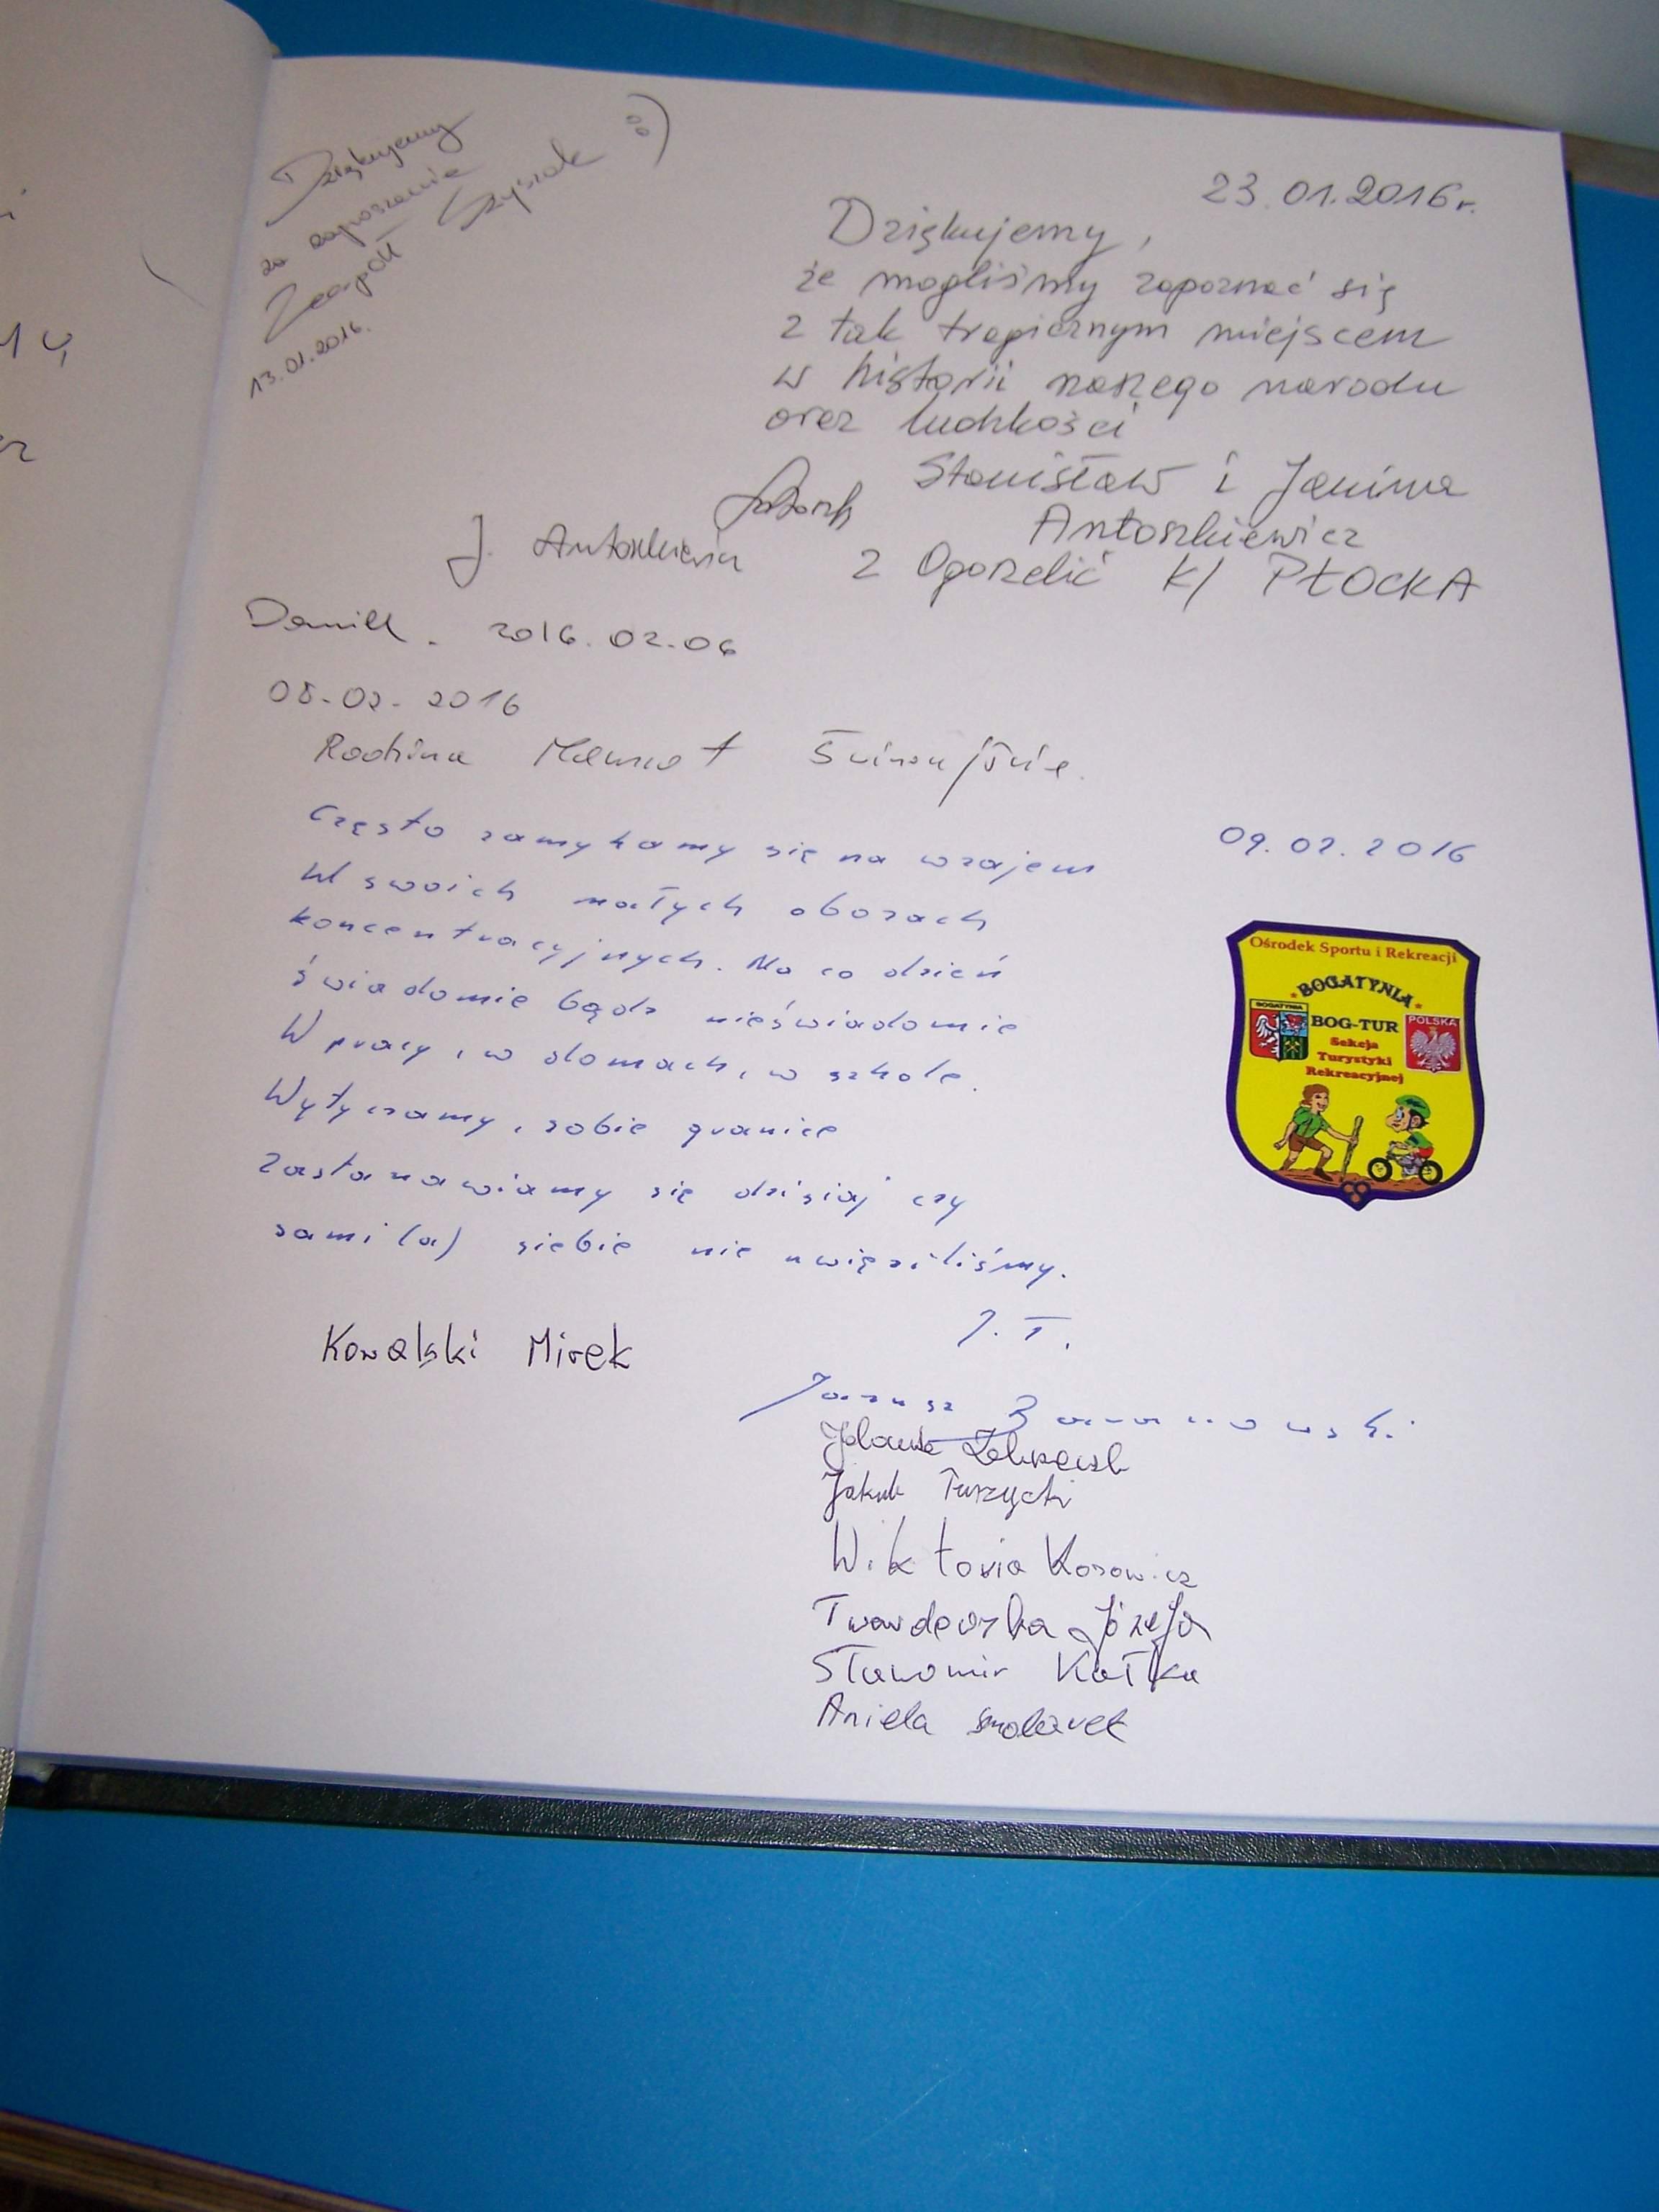 Dziękujemy
za zaproszenie
Zespół
13.01.2016.
23.01.2016r.
Dziękujemy,
że mogliśmy zapoznać się
z tak tragicznym miejscem
w historii naszego narodu
oraz ludzkości
Stanisław i Janina
Antoszkiewicz
J. Antoszkiewicz
z Ogorzelic k/ PŁOCKA
2016.02.06
08-02-2016
Rodzina
09.02.2016
Często zamykamy się na wzajem
W swoich małych obozach
koncentracyjnych. Na co dzień
świadomie bądz nieświadomie
W pracy, w domach, w szkole.
Wytyczamy, sobie granice
Zastanawiamy się dzisiaj czy
sami (a) siebie nie uwięziliśmy.
J. T.
Ośrodek Sportu i Rekreacji
BOGATYNIA
BOGATYNIA
BOG-TUR
POLSKA
Sekcja
Turystyki
Rekreacyjnej
Kowalski Mirek
Janusz Baranowski
Jolanta
Jakub Turzycki
Wiktoria Korowicz
Twardowska Józefa
Sławomir Kałka
Aniela